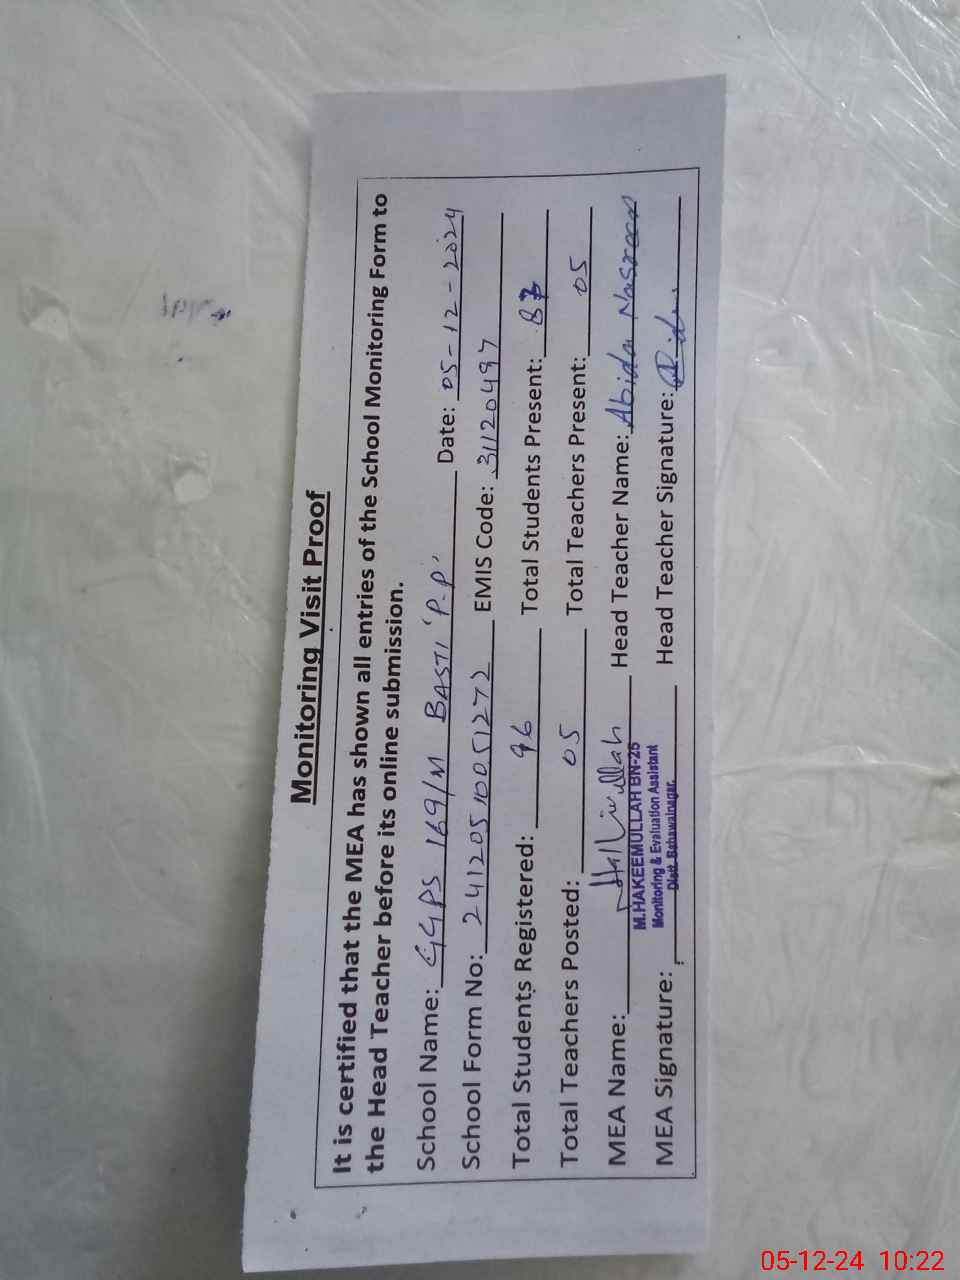 Monitoring Visit Proof
It is certified that the MEA has shown all entries of the School Monitoring Form to
the Head Teacher before its online submission.
School Name: GGPS 169/M BASTI 'P.P' Date: 05-12-2024
School Form No: 24120510051272 EMIS Code: 31120497
Total Students Registered: 96 Total Students Present: 87
Total Teachers Posted: 05 Total Teachers Present: 05
MEA Name: Head Teacher Name: Abida Nasreen
M.HAKEEMULLAH BN-26
Monitoring & Evaluation Assistant
Distt. Bahawalnagar.
MEA Signature: Head Teacher Signature:
05-12-24 10:22